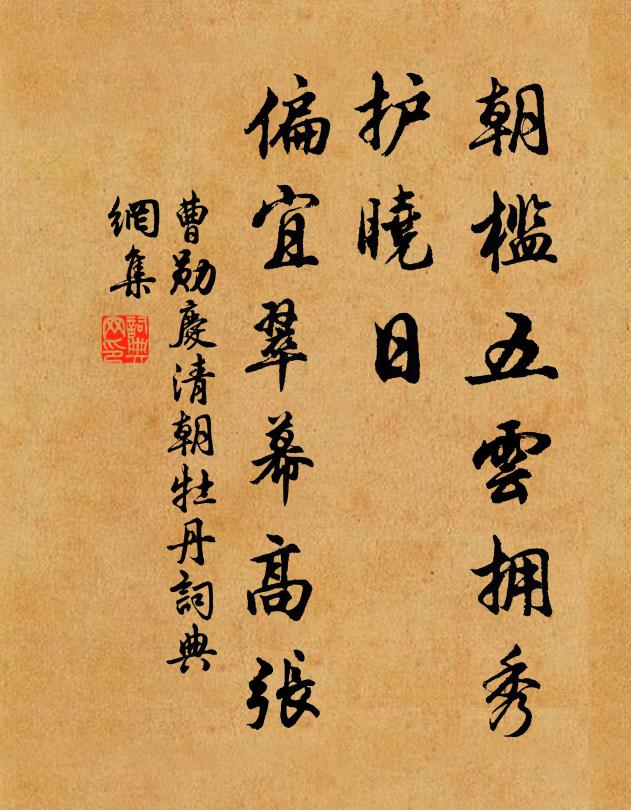 朝槛五雲拥秀
护曉日
偏宜翠幕高張
曹勋慶清朝牡丹詞典
網集
詞典网印